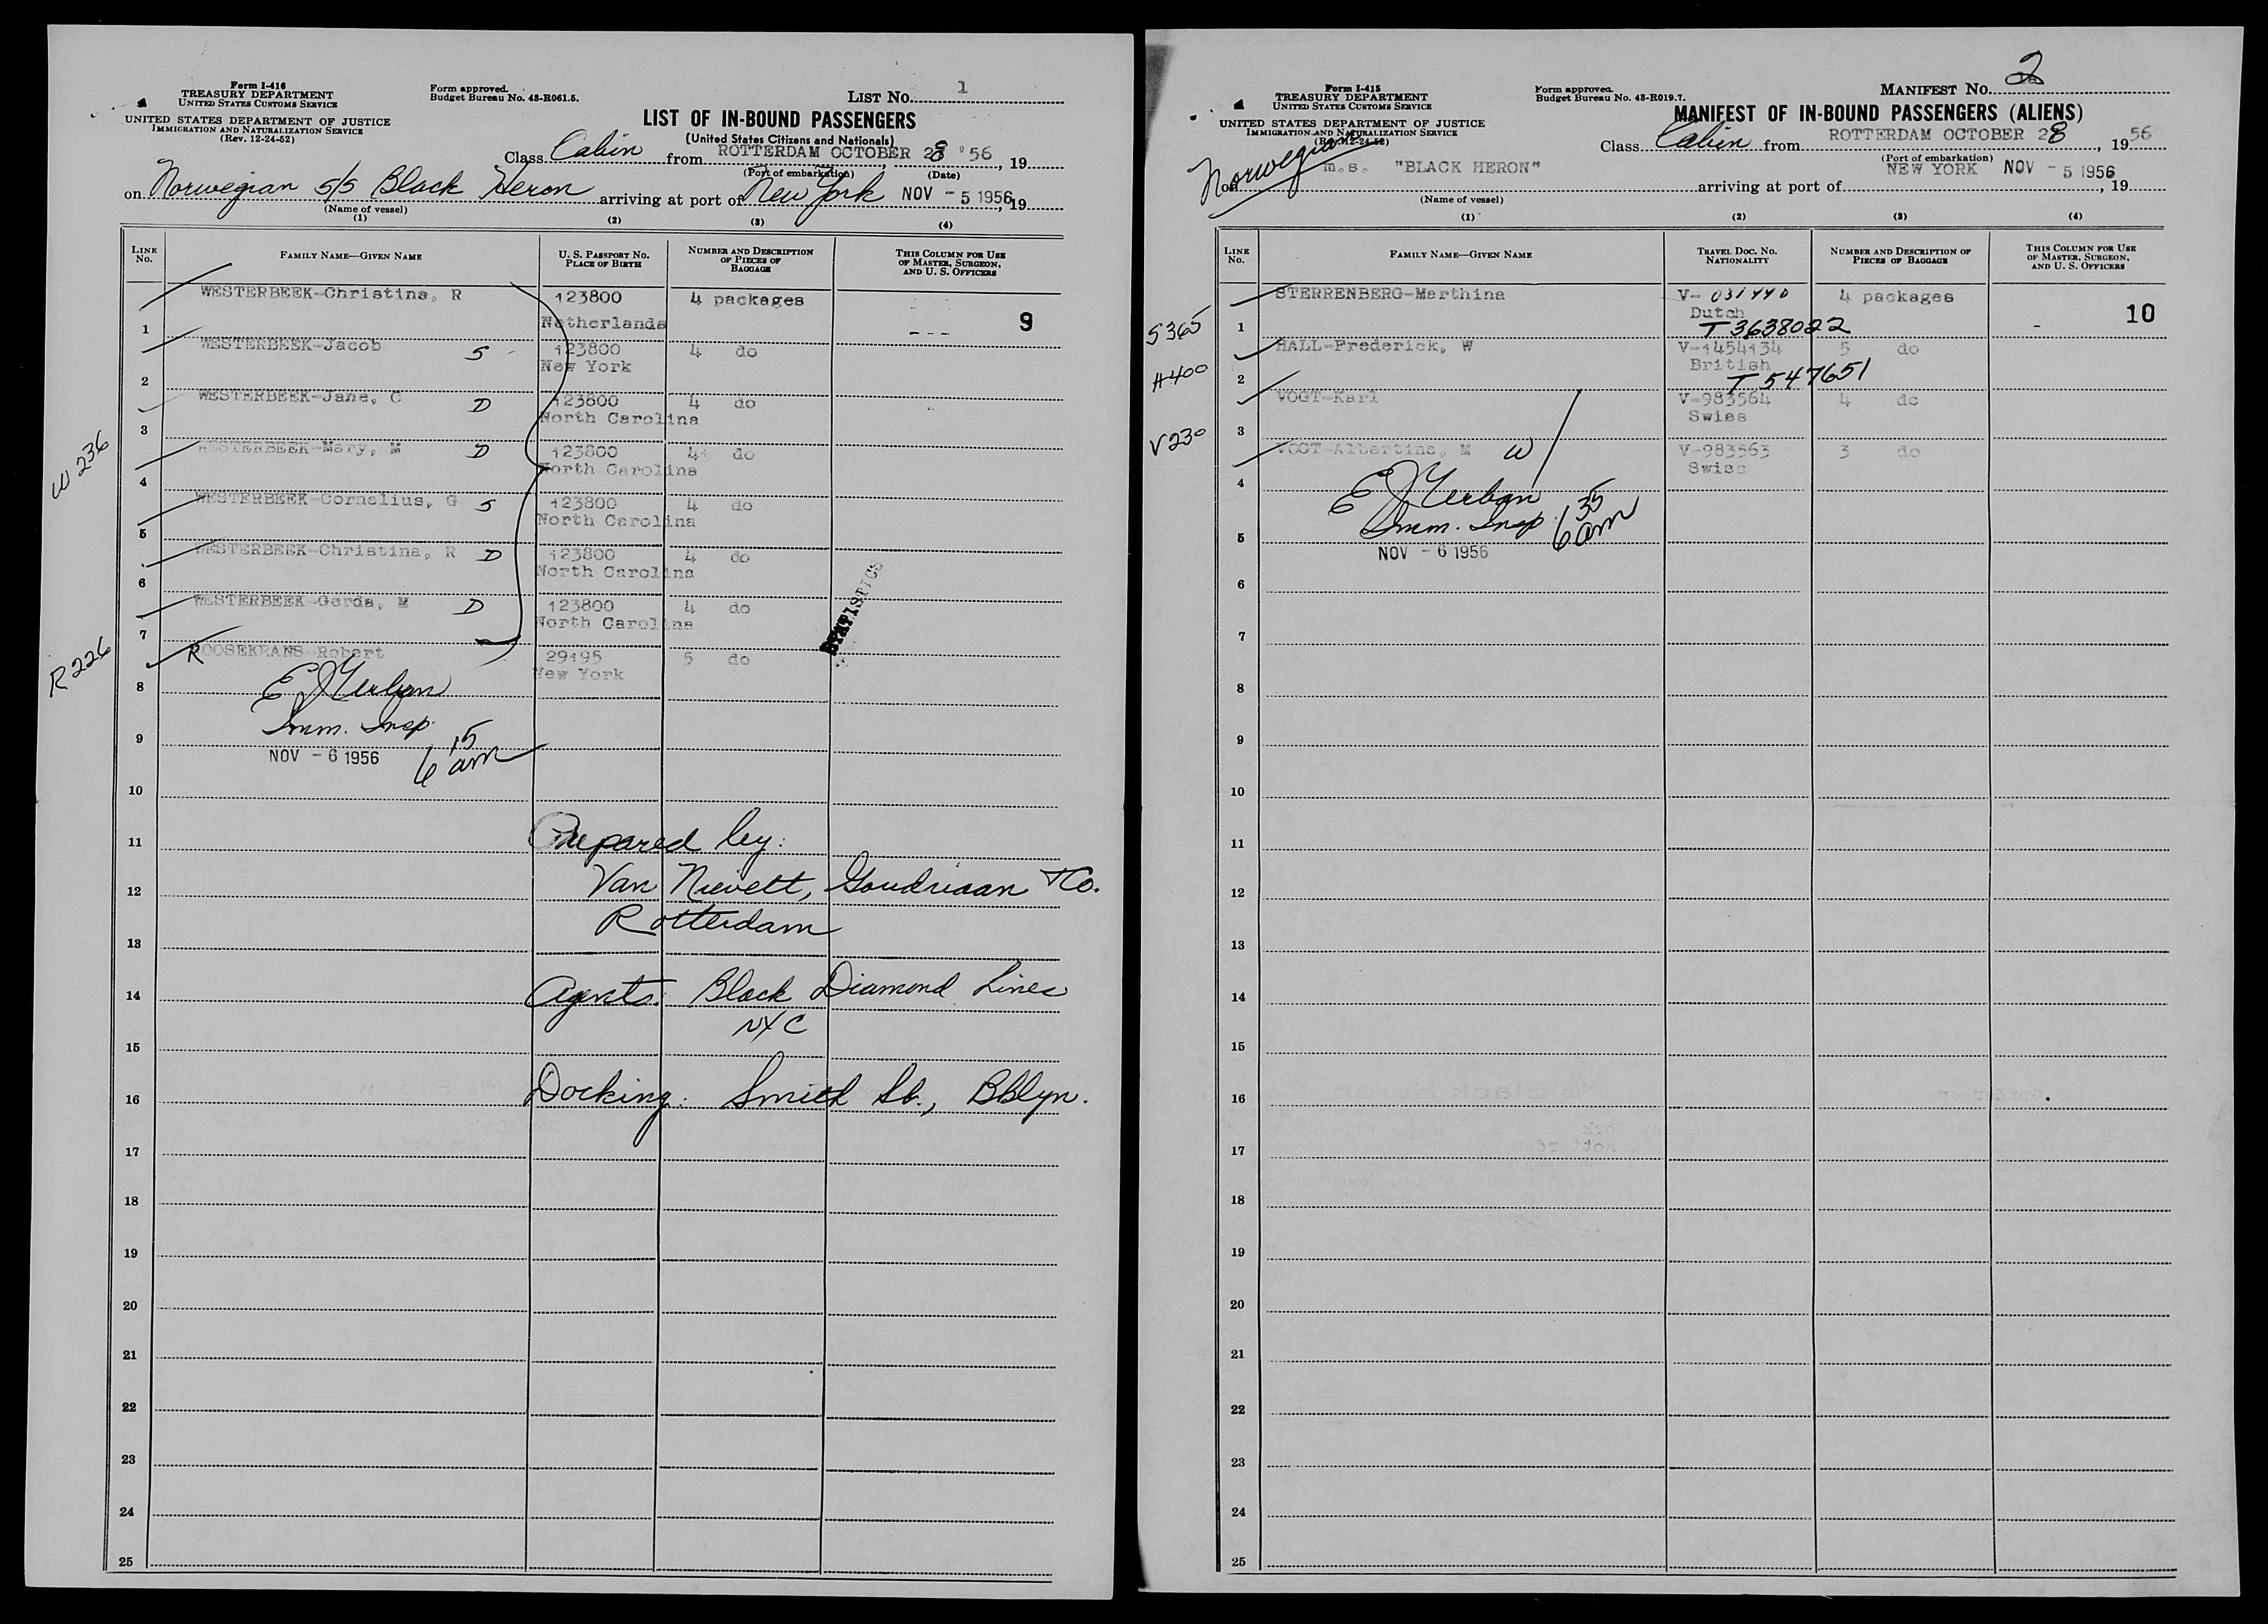 Form I-416
TREASURY DEPARTMENT
UNITED STATES CUSTOMS SERVICE
UNITED STATES DEPARTMENT OF JUSTICE
IMMIGRATION AND NATURALIZATION SERVICE
(Rev. 12-24-52)
Form approved.
Budget Bureau No. 43-R061.5.
LIST No. 1
LIST OF IN-BOUND PASSENGERS
(United States Citizens and Nationals)
Class Cabin from ROTTERDAM OCTOBER 28 '56, 19
(Port of embarkation) (Date)
on Norwegian S/S Black Heron arriving at port of New York NOV - 5 1956, 19
(Name of vessel)
(1) (2) (3) (4)
LINE No. FAMILY NAME—GIVEN NAME U. S. PASSPORT No. PLACE OF BIRTH NUMBER AND DESCRIPTION OF PIECES OF BAGGAGE THIS COLUMN FOR USE OF MASTER, SURGEON, AND U. S. OFFICERS
WESTERBEEK-Christina, R 123800 4 packages
1 Netherlands --- 9
WESTERBEEK-Jacob S 123800 4 do
2 New York
WESTERBEEK-Jane, C D 123800 4 do
3 North Carolina
W 236
WESTERBEEK-Mary, M D 123800 4 do
4 North Carolina
WESTERBEEK-Cornelius, G S 123800 4 do
5 North Carolina
WESTERBEEK-Christina, R D 123800 4 do
6 North Carolina
STATISTICS
WESTERBEEK-Gerda, M D 123800 4 do
7 North Carolina
R 226
ROOSEKRANS-Robert 29195 5 do
8 New York
Imm. Insp.
9
NOV - 6 1956 6 15 am
10
11 Prepared by:
12 Van Nievelt, Goudriaan & Co.
Rotterdam
13
14 Agents: Black Diamond Lines
NYC
15
16 Docking: Smith St., Bklyn.
17
18
19
20
21
22
23
24
25
Form I-415
TREASURY DEPARTMENT
UNITED STATES CUSTOMS SERVICE
UNITED STATES DEPARTMENT OF JUSTICE
IMMIGRATION AND NATURALIZATION SERVICE
(Rev. 12-24-52)
Form approved.
Budget Bureau No. 43-R019.7.
MANIFEST No. 2
MANIFEST OF IN-BOUND PASSENGERS (ALIENS)
Class Cabin from ROTTERDAM OCTOBER 28, 1956
(Port of embarkation)
on Norwegian m.s. "BLACK HERON" arriving at port of NEW YORK NOV - 5 1956, 19
(Name of vessel)
(1) (2) (3) (4)
LINE No. FAMILY NAME—GIVEN NAME TRAVEL DOC. No. NATIONALITY NUMBER AND DESCRIPTION OF PIECES OF BAGGAGE THIS COLUMN FOR USE OF MASTER, SURGEON, AND U. S. OFFICERS
STERRENBERG-Marthina V- 031440 4 packages
Dutch 10
S365 1 T 3638022 -
HALL-Frederick, W V-1454134 5 do
British
H400 2 T 547651
VOGT-Karl V-983564 4 do
Swiss
V230 3
VOGT-Albertine, M W V-983563 3 do
Swiss
4
Imm. Insp. 6 35 am
5
NOV - 6 1956
6
7
8
9
10
11
12
13
14
15
16
17
18
19
20
21
22
23
24
25